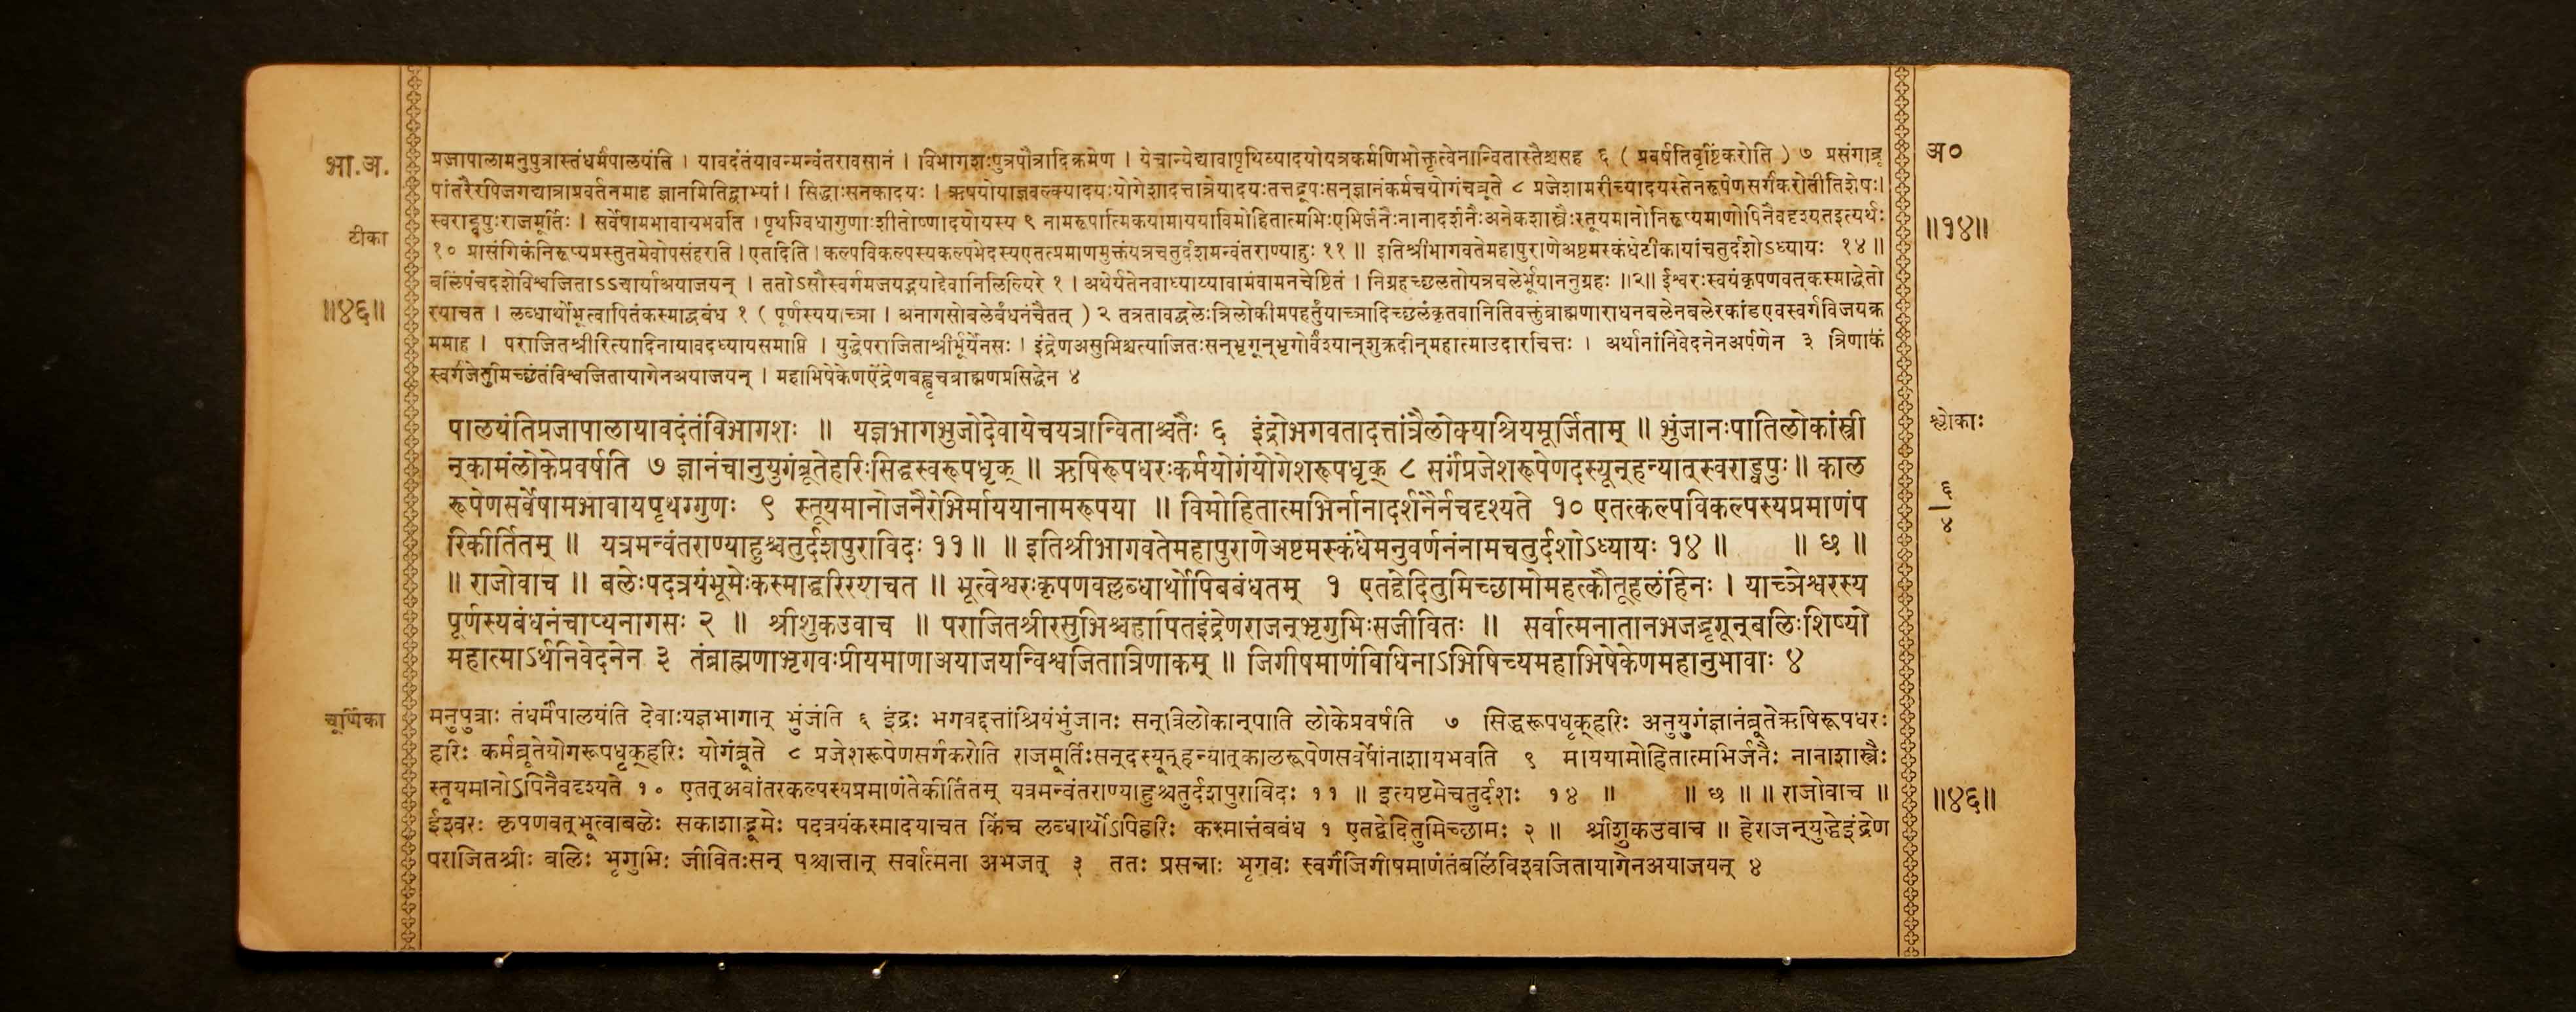 भा.अ.
टीका
॥४६॥
प्रजापालामनुपुत्रास्तंधर्मंपालयंति । यावदंतंयावन्मन्वंतरावसानं । विभागशःपुत्रपौत्रादिक्रमेण । येचान्येद्यावापृथिव्यादयोयत्रकर्मणिभोक्तृत्वेनान्वितास्तैश्चसह ६ ( प्रवर्षतिवृष्टिंकरोति ) ७ प्रसंगाद्रू
पांतरैरपिजगद्यात्राप्रवर्तनमाह ज्ञानमितिद्वाभ्यां । सिद्धाःसनकादयः । ऋषयोयाज्ञवल्क्यादयःयोगेशादत्तात्रेयादयःतत्तद्रूपःसन्ज्ञानंकर्मचयोगंचब्रूते ८ प्रजेशामरीच्यादयस्तेनरूपेणसर्गंकरोतीतिशेषः।
स्वराड्वपुःराजमूर्तिः । सर्वेषामभावायभवति । पृथग्विधागुणाःशीतोष्णादयोयस्य ९ नामरूपात्मिकयामाययाविमोहितात्मभिःएभिर्जनैःनानादर्शनैःअनेकशास्त्रैःस्तूयमानोनिरूप्यमाणोपिनैवदृश्यतइत्यर्थः
१० प्रासंगिकंनिरूप्यप्रस्तुतमेवोपसंहरति । एतदिति । कल्पविकल्पस्यकल्पभेदस्यएतत्प्रमाणमुक्तंयत्रचतुर्दशमन्वंतराण्याहुः ११ ॥ इतिश्रीभागवतेमहापुराणेअष्टमस्कंधेटीकायांचतुर्दशोऽध्यायः १४ ॥
बलिंपंचदशेविश्वजिताऽऽचार्याअयाजयन् । ततोऽसौस्वर्गमजयद्भयाद्देवानिलिल्यिरे १ । अथेर्यतेनवाध्याय्यावामंवामनचेष्टितं । निग्रहच्छलतोयत्रबलेर्भूयाननुग्रहः ॥२॥ ईश्वरःस्वयंकृपणवत्कस्माद्धेतो
रयाचत । लब्धार्थोभूत्वापितंकस्माद्बबंध १ ( पूर्णस्ययाच्ञा । अनागसोबलेर्बंधनंचैतत् ) २ तत्रतावद्बलेःत्रिलोकीमपहर्तुंयाच्ञादिच्छलंकृतवानितिवक्तुंब्राह्मणाराधनबलेनबलेरकांडएवस्वर्गविजयक्र
ममाह । पराजितश्रीरित्यादिनायावदध्यायसमाप्ति । युद्धेपराजिताश्रीर्भूर्येनसः । इंद्रेणअसुभिश्चत्याजितःसन्भृगून्भृगोर्वंश्यान्शुक्रदीन्महात्माउदारचित्तः । अर्थानांनिवेदनेनअर्पणेन ३ त्रिणाकं
स्वर्गंजेतुमिच्छंतंविश्वजितायागेनअयाजयन् । महाभिषेकेणऐंद्रेणबह्वृचब्राह्मणप्रसिद्धेन ४
अ०
॥१४॥
पालयंतिप्रजापालायावदंतंविभागशः ॥ यज्ञभागभुजोदेवायेचयत्रान्विताश्चतैः ६ इंद्रोभगवतादत्तांत्रैलोक्यश्रियमूर्जिताम् ॥ भुंजानःपातिलोकांस्त्री
न्कामंलोकेप्रवर्षति ७ ज्ञानंचानुयुगंब्रूतेहरिःसिद्धस्वरूपधृक् ॥ ऋषिरूपधरःकर्मयोगंयोगेशरूपधृक् ८ सर्गंप्रजेशरूपेणदस्यून्हन्यात्स्वराड्वपुः॥ काल
रूपेणसर्वेषामभावायपृथग्गुणः ९ स्तूयमानोजनैरेभिर्माययानामरूपया ॥ विमोहितात्मभिर्नानादर्शनैर्नचदृश्यते १० एतत्कल्पविकल्पस्यप्रमाणंप
रिकीर्तितम् ॥ यत्रमन्वंतराण्याहुश्चतुर्दशपुराविदः ११॥ ॥ इतिश्रीभागवतेमहापुराणेअष्टमस्कंधेमनुवर्णनंनामचतुर्दशोऽध्यायः १४ ॥ ॥ छ ॥
॥ राजोवाच ॥ बलेःपदत्रयंभूमेःकस्माद्धरिरयाचत ॥ भूत्वेश्वरःकृपणवल्लब्धार्थोपिबबंधतम् १ एतद्वेदितुमिच्छामोमहत्कौतूहलंहिनः । याच्ञेश्वरस्य
पूर्णस्यबंधनंचाप्यनागसः २ ॥ श्रीशुकउवाच ॥ पराजितश्रीरसुभिश्चहापितइंद्रेणराजन्भृगुभिःसजीवितः ॥ सर्वात्मनातानभजद्भृगून्बलिःशिष्यो
महात्माऽर्थनिवेदनेन ३ तंब्राह्मणाभृगवःप्रीयमाणाअयाजयन्विश्वजितात्रिणाकम् ॥ जिगीषमाणंविधिनाऽभिषिच्यमहाभिषेकेणमहानुभावाः ४
श्लोकाः
६
४
चूर्णिका
मनुपुत्राः तंधर्मंपालयंति देवाःयज्ञभागान् भुंजंति ६ इंद्रः भगवद्दत्तांश्रियंभुंजानः सन्त्रिलोकान्पाति लोकेप्रवर्षति ७ सिद्धरूपधृक्हरिः अनुयुगंज्ञानंब्रूतेऋषिरूपधरः
हरिः कर्मब्रूतेयोगरूपधृक्हरिः योगंब्रूते ८ प्रजेशरूपेणसर्गंकरोति राजमूर्तिःसन्दस्यून्हन्यात्कालरूपेणसर्वेषांनाशायभवति ९ माययामोहितात्मभिर्जनैः नानाशास्त्रैः
स्तूयमानोऽपिनैवदृश्यते १० एतत्अवांतरकल्पस्यप्रमाणंतेकीर्तितम् यत्रमन्वंतराण्याहुश्चतुर्दशपुराविदः ११ ॥ इत्यष्टमेचतुर्दशः १४ ॥ ॥ छ ॥ ॥ राजोवाच ॥
ईश्वरः कृपणवत्भूत्वाबलेः सकाशाद्भूमेः पदत्रयंकस्मादयाचत किंच लब्धार्थोऽपिहरिः कस्मात्तंबबंध १ एतद्वेदितुमिच्छामः २ ॥ श्रीशुकउवाच ॥ हेराजन्युद्धेइंद्रेण
पराजितश्रीः बलिः भृगुभिः जीवितःसन् पश्चात्तान् सर्वात्मना अभजत् ३ ततः प्रसन्नाः भृगवः स्वर्गंजिगीषमाणंतंबलिंविश्वजितायागेनअयाजयन् ४
॥४६॥